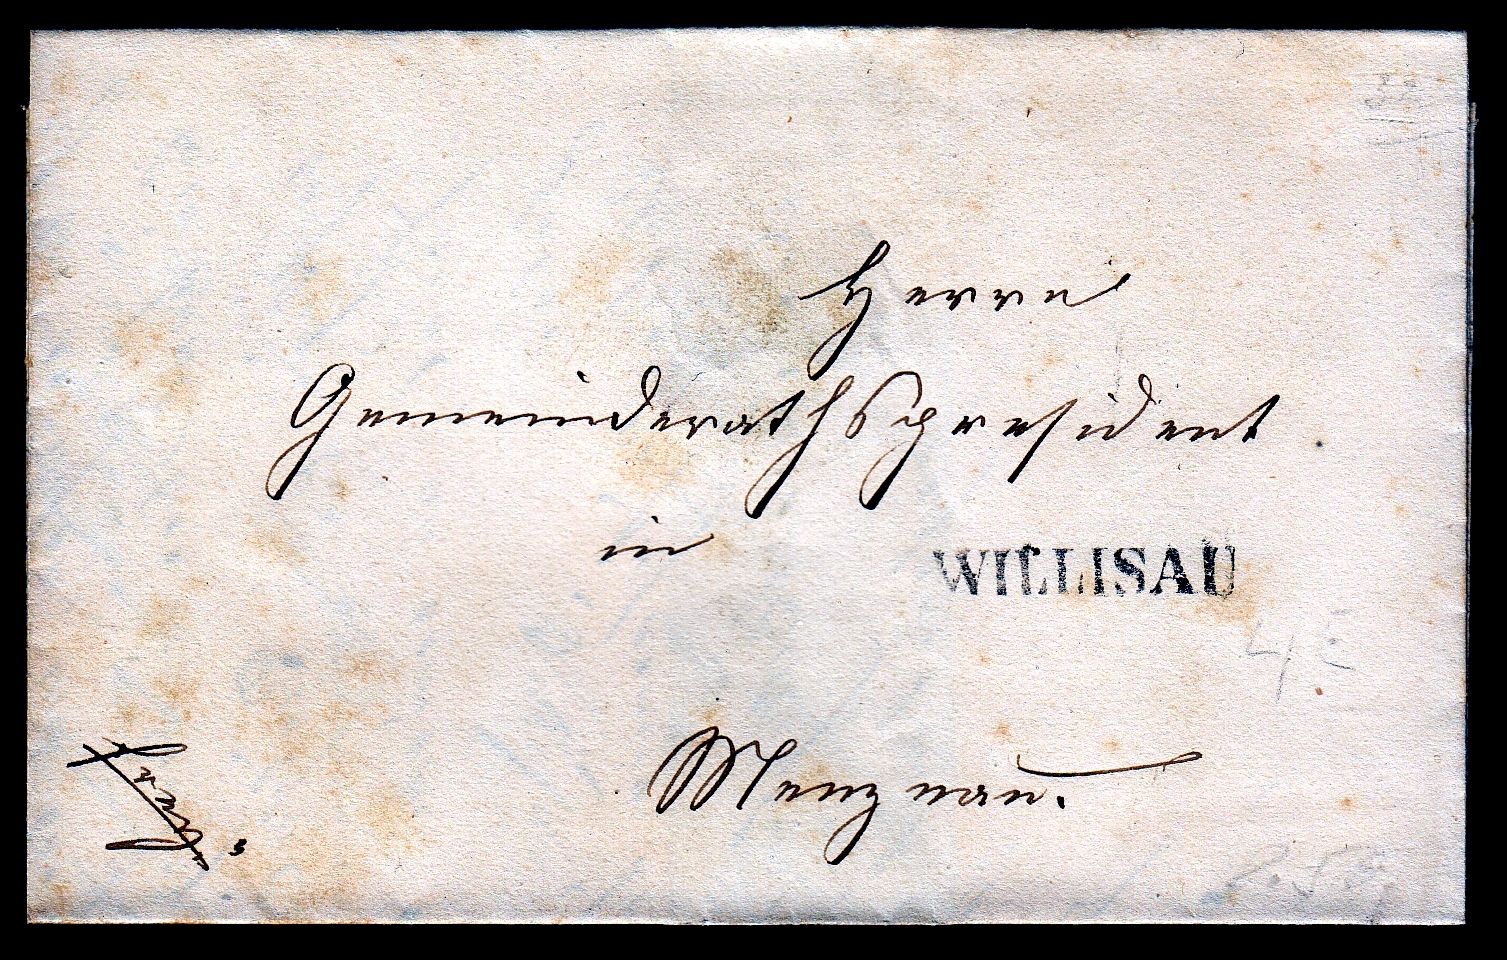 Herrn
Gemeinderathspresident
in
WILLISAU
Menznau.